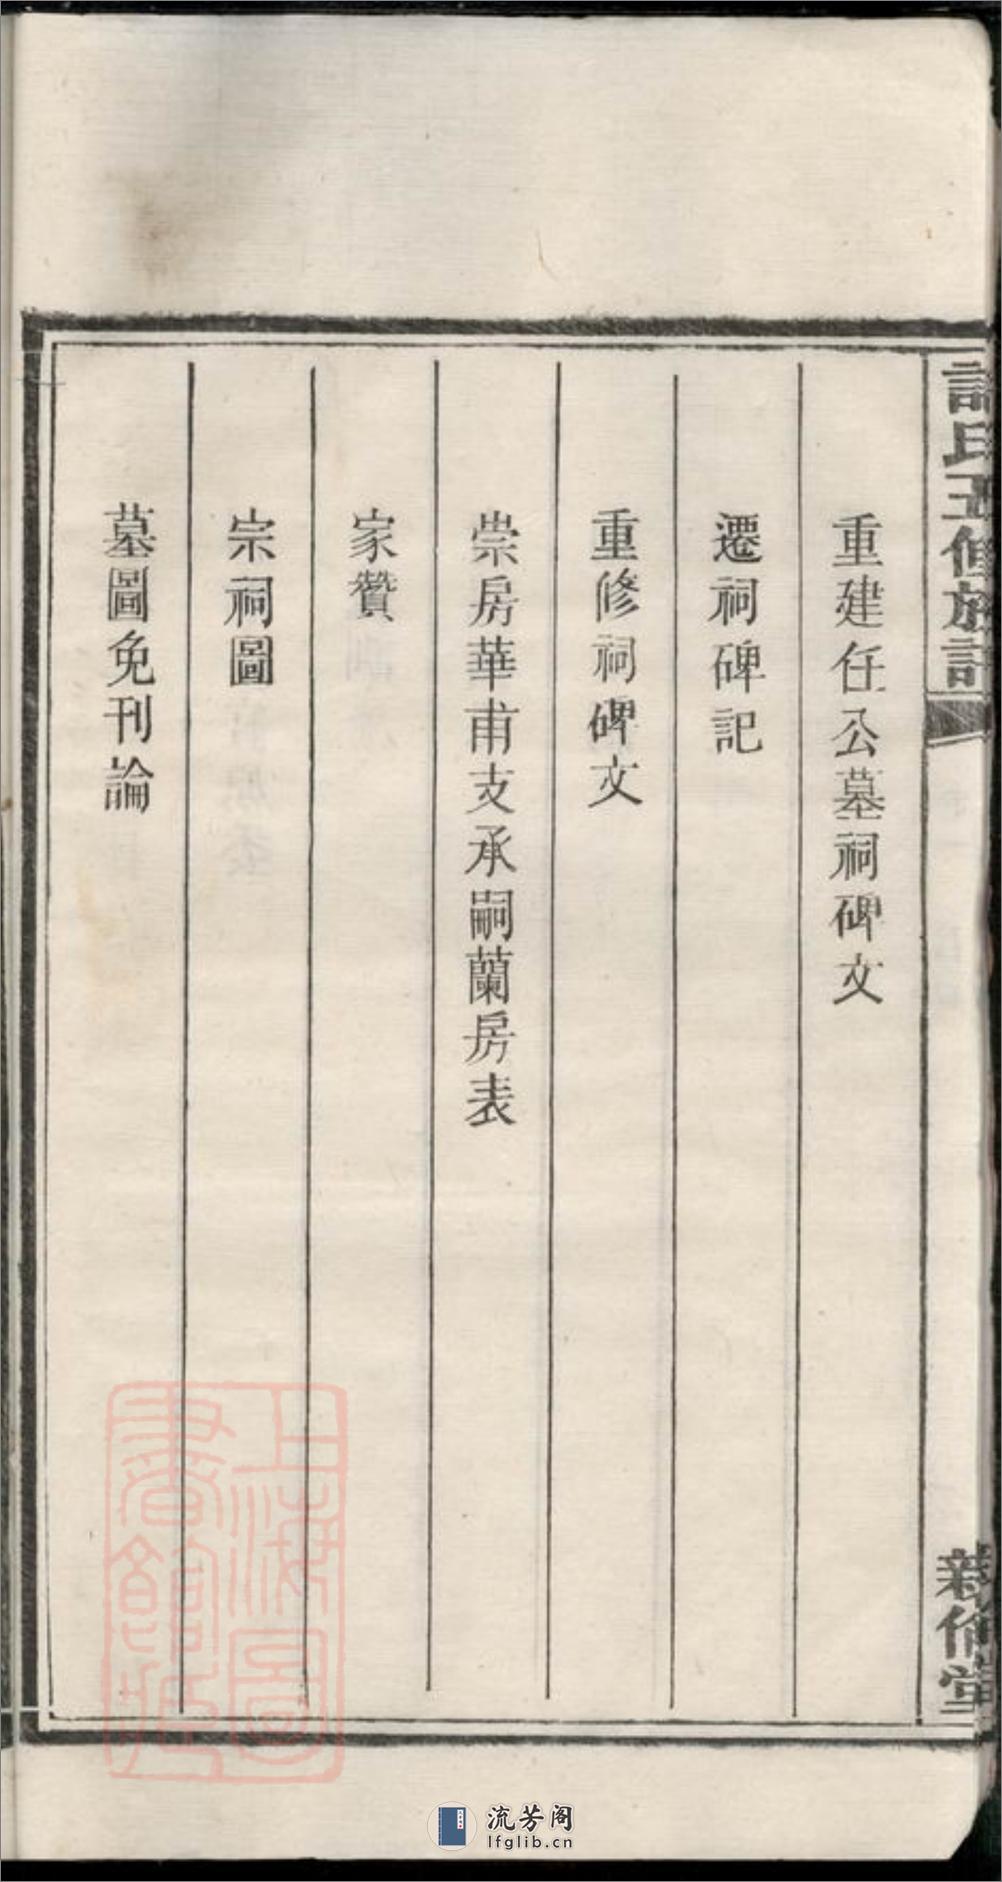 重建任公墓祠碑文
遷祠碑記
重修祠碑文
崇房華甫支承嗣蘭房表
家贊
宗祠圖
墓圖免刊論
氏五修族
親倫堂
上海圖書館藏
流芳阁
lfglib.cn